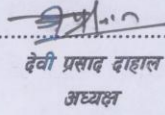 देवी प्रसाद दाहाल
अध्यक्ष